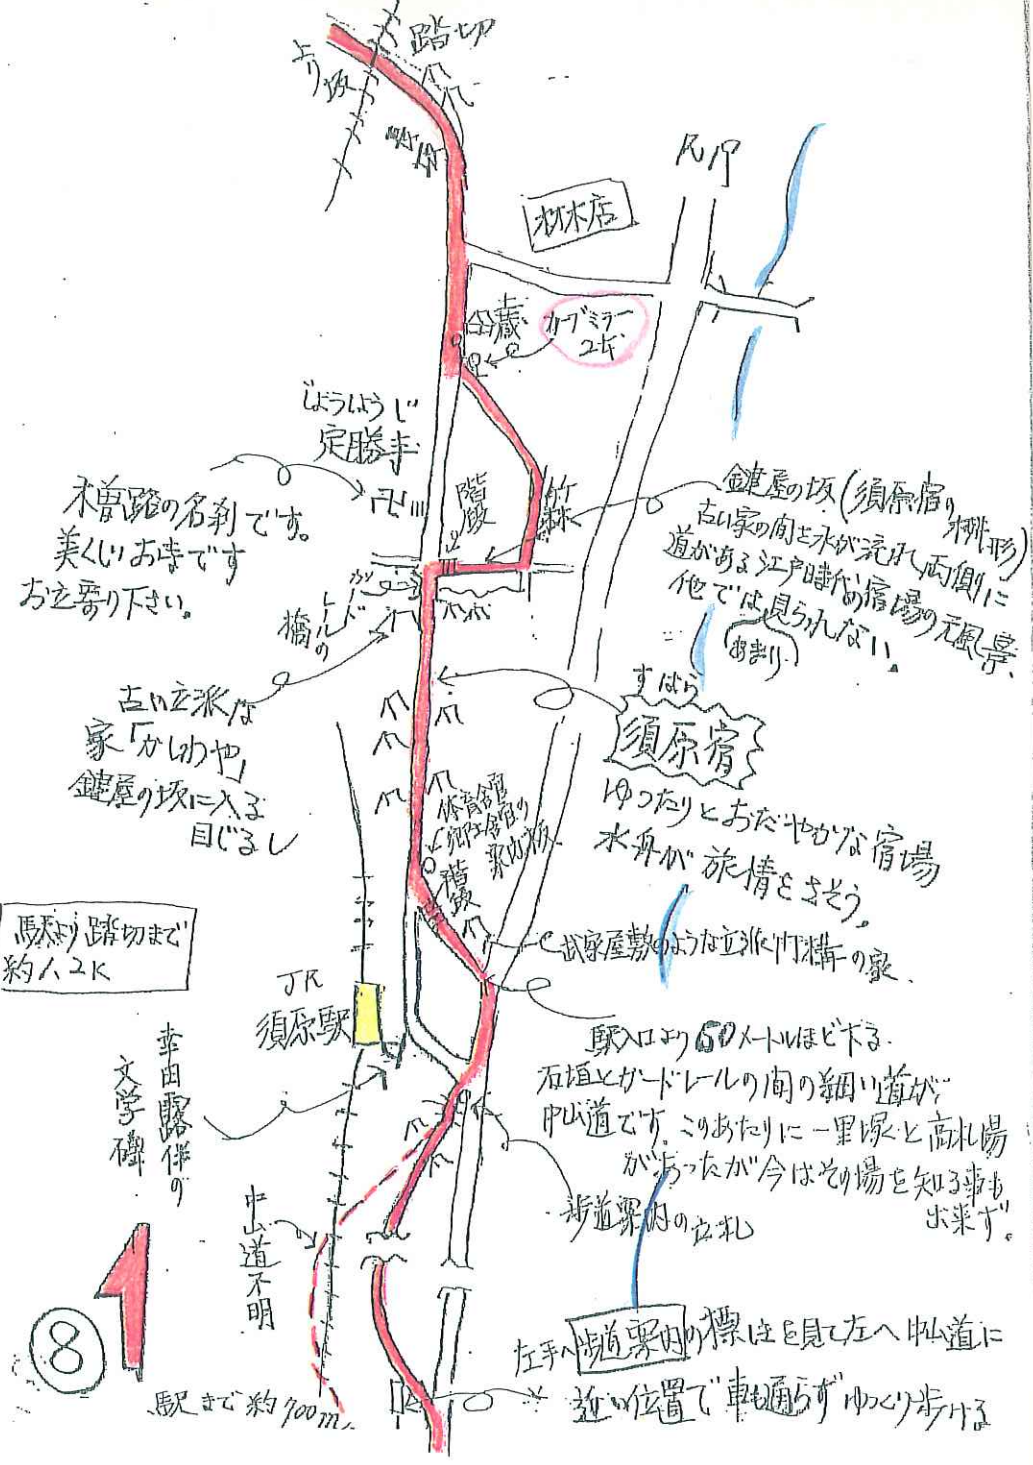 踏切
上り坂
R19
材木店
土蔵
カーブミラー
2ケ
じょうしょうじ
定勝寺
木曽路の名刹です。
美くしいお寺です
お立寄り下さい。
階段
竹林
鍵屋の坂(須原宿の
桝形)
古い家の間を水が流れ両側に
道がある江戸時代の宿場の元風景、
他では見られない。
あまり
ガード
レールの
橋
古い立派な
家「かしわや」
鍵屋の坂に入る
目じるし
すはら
須原宿
ゆったりとおだやかな宿場
水舟が旅情をさそう。
体育館
案内板
階段
武家屋敷のような立派門構えの家
駅より踏切まで
約1.2K
JR
須原駅
幸田露伴の
文学碑
駅入口より50メートルほど下る。
石垣とガードレールの間の細い道が、
中山道です。このあたりに一里塚と高札場
があったが今はその場を知る事も
出来ず。
歩道案内の立札
中山道不明
8
駅まで約700m
左手へ歩道案内の標柱を見て左へ中山道に
近い位置で車も通らずゆっくり歩ける